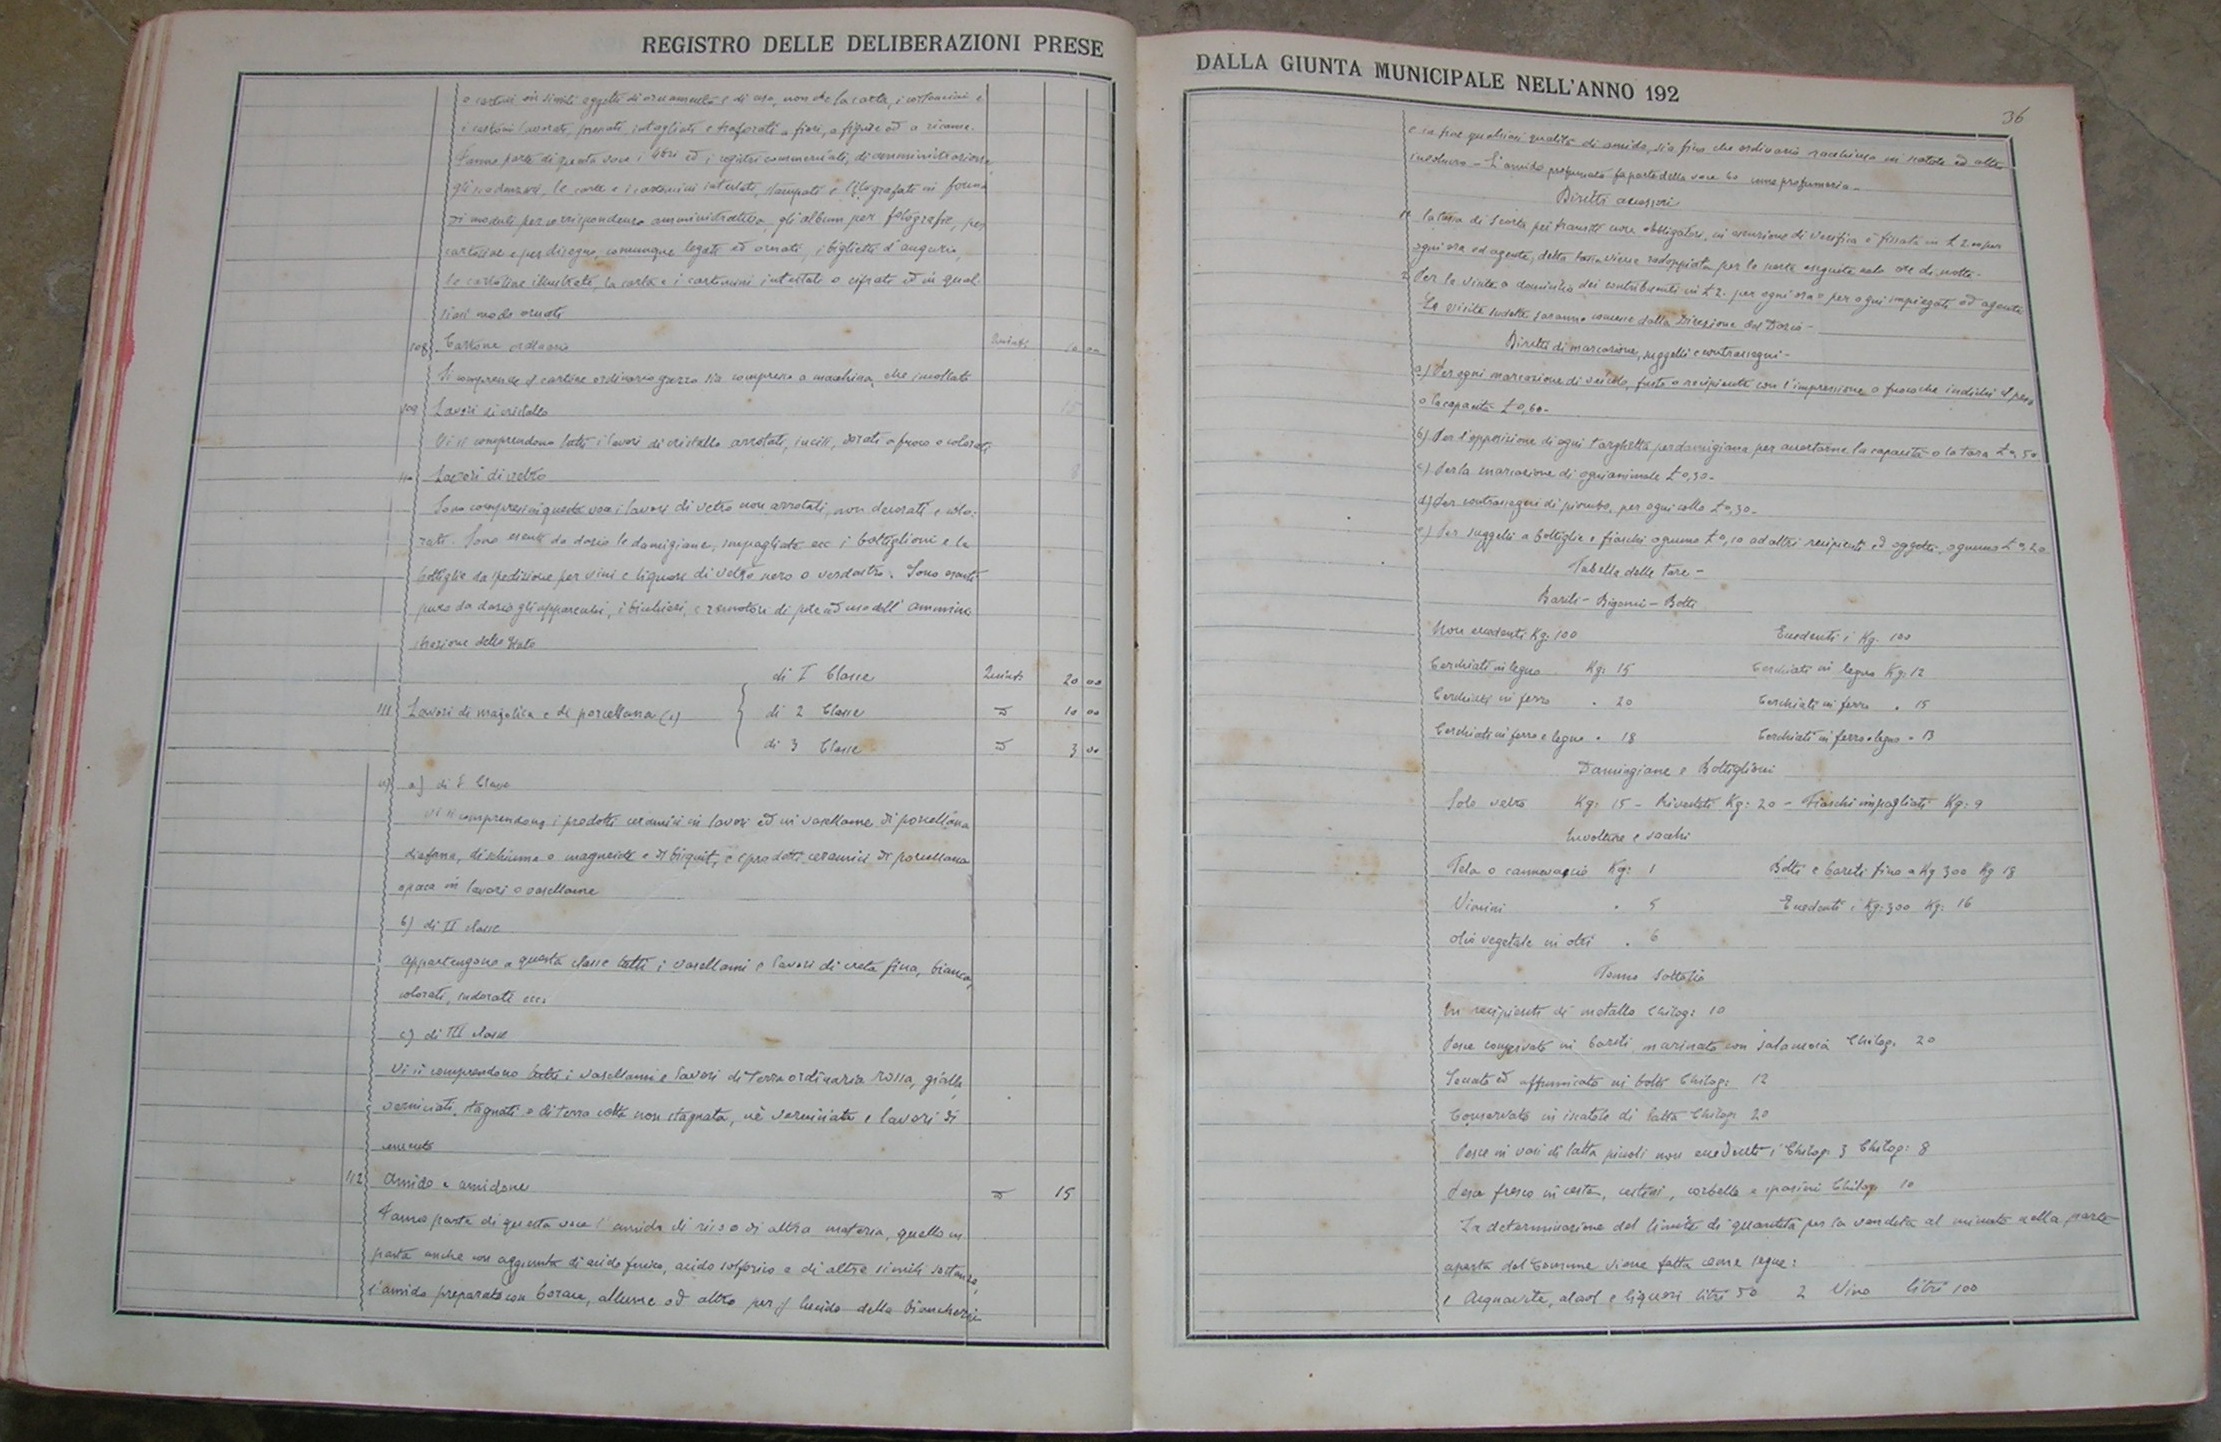 REGISTRO DELLE DELIBERAZIONI PRESE
o cartoni in simili oggetti di ornamento e di uso, non che la carta, i cartoncini e
i cartoni lavorati, intagliati e traforati a fiori, a figure ed a ricamo.
Fanno parte di questa voce i libri ed i registri commerciali, di amministrazione
gli scadenzari, le carte e i cartoncini intestati, stampati e litografati in forma
di moduli per corrispondenza amministrativa, gli album per fotografie, per
cartoline e per disegno, comunque legati ed ornati, i biglietti d'augurio,
le cartoline illustrate, la carta e i cartoncini intestati o cifrati ed in qual
siasi modo ornati
108 Cartone ordinario Quintale 10 00
Si comprende il cartone ordinario grezzo sia compresso a macchina, che incollato
109 Lavori di cristallo 15
Vi si comprendono tutti i lavori di cristallo arrotati, incisi, dorati a fuoco e colorati
110 Lavori di vetro 8
Sono compresi in questa voce i lavori di vetro non arrotati, non decorati e colo:
rati. Sono esenti da dazio le damigiane, impagliate ecc i bottiglioni e le
bottiglie da spedizione per vini e liquori di vetro nero o verdastro. Sono esenti
pure da dazio gli apparecchi, i bicchieri, e isolatori di pile ad uso dell'ammini
strazione dello Stato
di I Classe Quintale 20 00
111 Lavori di majolica e di porcellana (1) di 2 Classe D 10 00
di 3 Classe D 3 00
a) di I Classe
Vi si comprendono i prodotti ceramici in lavori ed in vasellame di porcellana
diafana, di schiuma o magnesite e di bisquit, e i prodotti ceramici di porcellana
opaca in lavori o vasellame
b) di II classe
appartengono a questa classe tutti i vasellami e lavori di creta fina, bianca,
colorati, indorati ecc.
c) di III classe
Vi si comprendono tutti i vasellami e lavori di terra ordinaria rossa, gialla
verniciati, stagnati o di terra cotta non stagnata, nè verniciata e lavori di
cemento
112 Amido e amidone D 15
Fanno parte di questa voce l'amido di riso o di altra materia, quello in
pasta anche con aggiunta di acido fenico, acido solforico e di altre simili sostanze,
l'amido preparato con borace, allume od altro per il lucido della biancheria
DALLA GIUNTA MUNICIPALE NELL'ANNO 192
36
e in fine qualsiasi qualità di amido, sia fino che ordinario racchiuso in scatole ed altro
involucro - L'amido profumato fa parte della voce 60 come profumeria -
Diritti accessori
1° la tassa di scorta pei transiti non obbligatori, in occasione di verifica è fissata in £ 2.00 per
ogni ora ed agente, detta tassa viene raddoppiata per le scorte eseguite nelle ore di notte.
2 Per la visita a domicilio dei contribuenti in £ 2. per ogni ora e per ogni impiegato od agente
Le visite suddette saranno concesse dalla Direzione del Dazio -
Diritti di marcazione, suggelli e contrassegni -
a) Per ogni marcazione di veicolo, fusto o recipiente con l'impressione a fuoco che indichi il peso
o la capacità £ 0,60 -
b) Per l'apposizione di ogni targhetta per damigiana per accertarne la capacità o la tara £ 0,50
c) Per la marcazione di ogni animale £ 0,30 -
d) Per contrassegni di piombo, per ogni collo £ 0,30 -
e) Per suggelli a bottiglie e fiaschi ognuno £ 0,10 ad altri recipienti ed oggetti, ognuno £ 0,20
Tabella delle tare -
Barili - Bigonci - Botti
Non eccedenti Kg: 100 Eccedenti i Kg. 100
Cerchiati in legno Kg: 15 Cerchiati in legno Kg: 12
Cerchiati in ferro . 20 Cerchiati in ferro . 15
Cerchiati in ferro e legno . 18 Cerchiati in ferro e legno . 13
Damigiane e Bottiglioni
Solo vetro Kg: 15 - Rivestiti Kg: 20 - Fiaschi impagliati Kg: 9
Involture e sacchi
Tela o cannevaccio Kg: 1 Botti e barili fino a Kg 300 Kg 18
Vimini . 5 Eccedenti i Kg: 300 Kg: 16
olio vegetale in otri . 6
Tonno sottolio
In recipienti di metallo Chilog: 10
Pesce conservato in barili marinato con salamoia Chilog. 20
Seccato ed affumicato in botti Chilog: 12
Conservato in iscatole di latta Chilog. 20
Pesce in vasi di latta piccoli non eccedenti i Chilog. 3 Chilog: 8
Pesce fresco in ceste, cestini, corbelle e spasini Chilog 10
La determinazione del limite di quantità per la vendita al minuto nella parte
aperta del Comune viene fatta come segue:
1 Acquavite, alcool e liquori litri 50 2 Vino litri 100